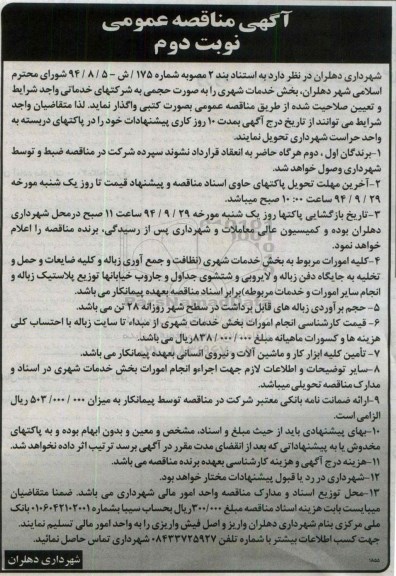 آگهی مناقصه عمومی
نوبت دوم
شهرداری دهلران در نظر دارد به استناد بند ۲ مصوبه شماره ۱۷۵ / ش - ۵ / ۸ / ۹۴ شورای محترم
اسلامی شهر دهلران، بخش خدمات شهری را به صورت حجمی به شرکتهای خدماتی واجد شرایط
و تعیین صلاحیت شده از طریق مناقصه عمومی بصورت کتبی واگذار نماید. لذا متقاضیان واجد
شرایط می توانند از تاریخ درج آگهی بمدت ۱۰ روز کاری پیشنهادات خود را در پاکتهای دربسته به
واحد حراست شهرداری تحویل نمایند.
۱-برندگان اول ، دوم هرگاه حاضر به انعقاد قرارداد نشوند سپرده شرکت در مناقصه ضبط و توسط
شهرداری وصول خواهد شد.
۲-آخرین مهلت تحویل پاکتهای حاوی اسناد مناقصه و پیشنهاد قیمت تا روز یک شنبه مورخه
۲۹ / ۹ / ۹۴ ساعت ۱۰:۰۰ صبح میباشد.
۳-تاریخ بازگشایی پاکتها روز یک شنبه مورخه ۲۹ / ۹ / ۹۴ ساعت ۱۱ صبح درمحل شهرداری
دهلران بوده و کمیسیون عالی معاملات و شهرداری پس از رسیدگی، برنده مناقصه را اعلام
خواهد نمود.
۴-کلیه امورات مربوط به بخش خدمات شهری (نظافت و جمع آوری زباله و کلیه ضایعات و حمل و
تخلیه به جایگاه دفن زباله و لایروبی و شتشوی جداول و جاروب خیابانها توزیع پلاستیک زباله و
انجام سایر امورات و خدمات مربوطه)برابر اسناد مناقصه بعهده پیمانکار می باشد.
۵- حجم برآوردی زباله های قابل برداشت در سطح شهر روزانه ۲۸ تن می باشد.
۶- قیمت کارشناسی انجام امورات بخش خدمات شهری از مبداء تا سایت زباله با احتساب کلی
هزینه ها و کسورات ماهیانه مبلغ ۸۳۸/۰۰۰/۰۰۰ریال می باشد.
۷- تأمین کلیه ابزار کار و ماشین آلات و نیروی انسانی بعهده پیمانکار می باشد.
۸-سایر توضیحات و اطلاعات لازم جهت اجراءو انجام امورات بخش خدمات شهری در اسناد و
مدارک مناقصه تحویلی میباشد.
۹-ارائه ضمانت نامه بانکی معتبر شرکت در مناقصه توسط پیمانکار به میزان ۵۰۳/۰۰۰/۰۰۰ ریال
الزامی است.
۱۰-بهای پیشنهادی باید از حیث مبلغ و اسناد، مشخص و معین و بدون ابهام بوده و به پاکتهای
مخدوش یا به پیشنهاداتی که بعد از انقضای مدت مقرر در آگهی برسد ترتیب اثر داده نخواهد شد.
۱۱-هزینه درج آگهی و هزینه کارشناسی بعهده برنده مناقصه می باشد.
۱۲-شهرداری در رد یا قبول پیشنهادات مختار خواهد بود.
۱۳-محل توزیع اسناد و مدارک مناقصه واحد امور مالی شهرداری می باشد. ضمنا متقاضیان
میبایست بابت هزینه اسناد مناقصه مبلغ ۳۰۰/۰۰۰ریال بحساب سیبا بشماره ۰۱۰۶۰۴۲۱۰۲۰۰۱بانک
ملی مرکزی بنام شهرداری دهلران واریز و اصل فیش واریزی را به واحد امور مالی تسلیم نمایند.
جهت کسب اطلاعات بیشتر با شماره تلفن ۰۸۴۳۳۷۲۵۹۲۷ شهرداری تماس حاصل نمائید.
شهرداری دهلران